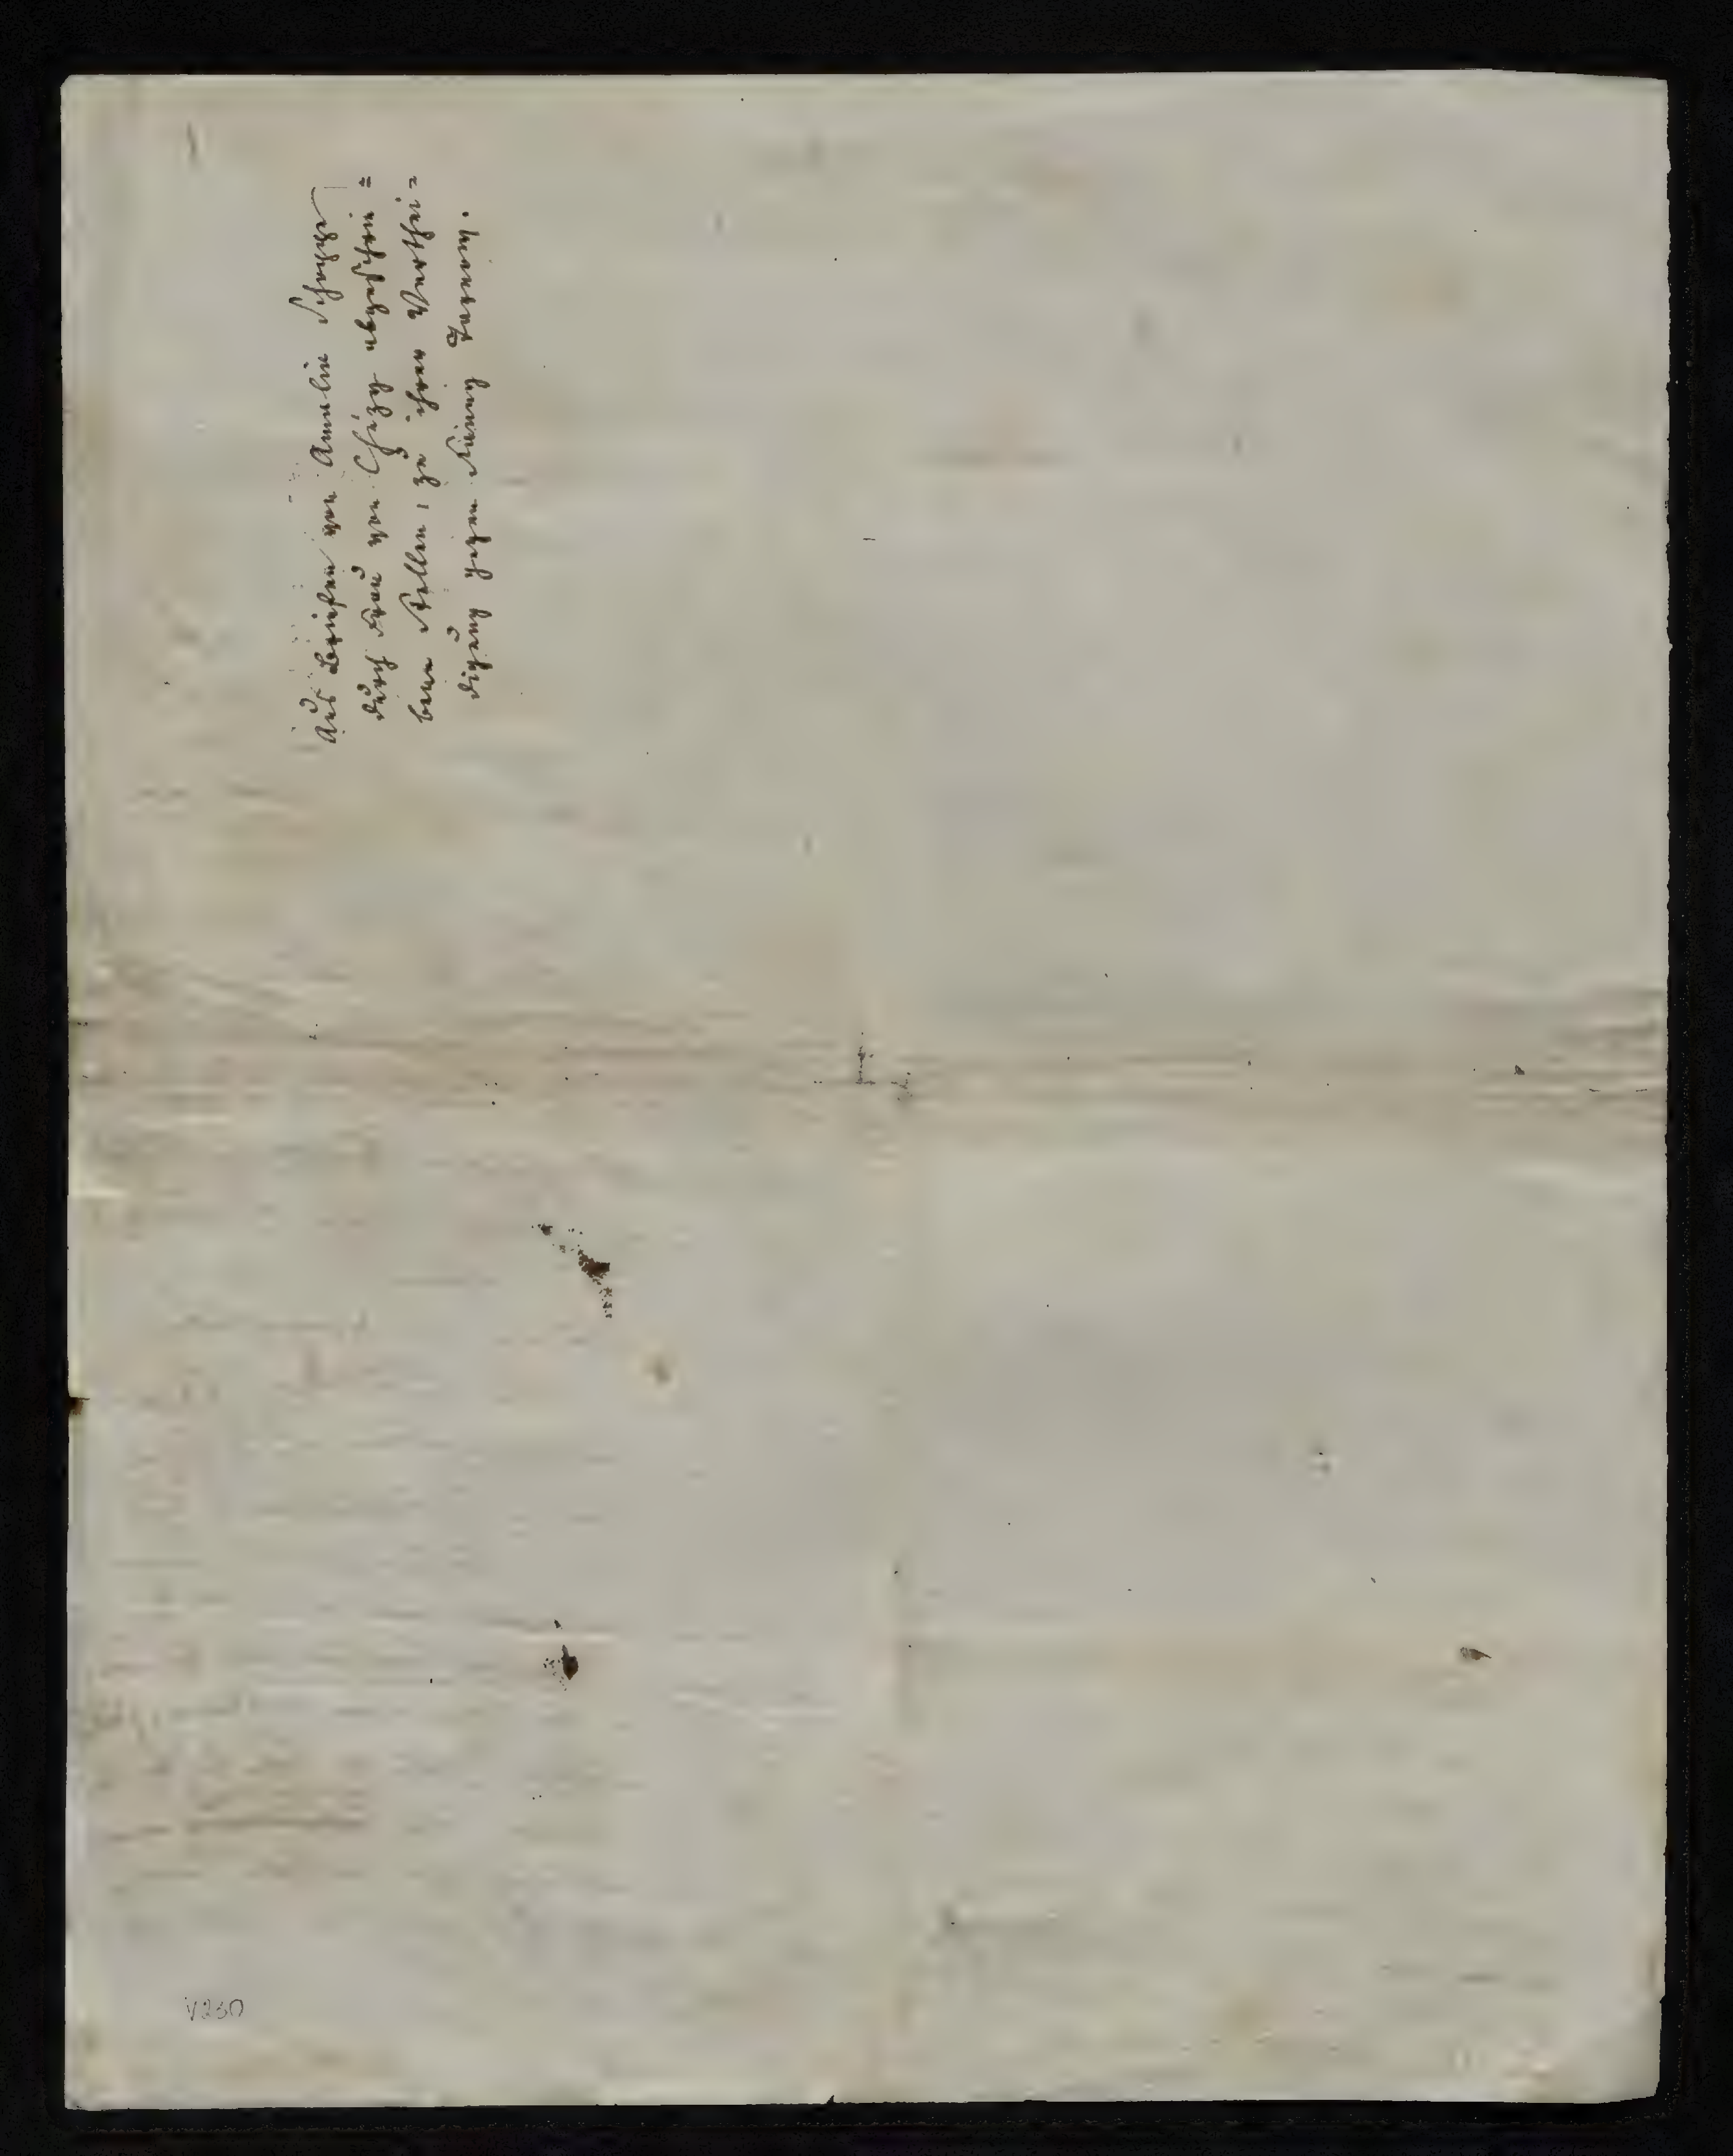 Aus Briefen von Amalie Schoppe
durch Frau von Chézy abgeschrie=
bene Stellen, zu ihrer Verthei=
digung gegen Fanny Tarnow.
V230